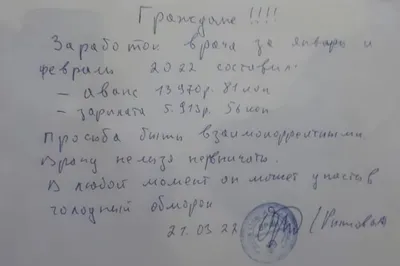 Граждане !!!!
Заработок врача за январь и
февраль 2022 составил:
– аванс 13970р. 81 коп
– зарплата 5.913р. 56 коп.
Просьба быть взаимокорректными.
Врачу нельзя нервничать.
В любой момент он может упасть в
голодный обморок
21.03.22